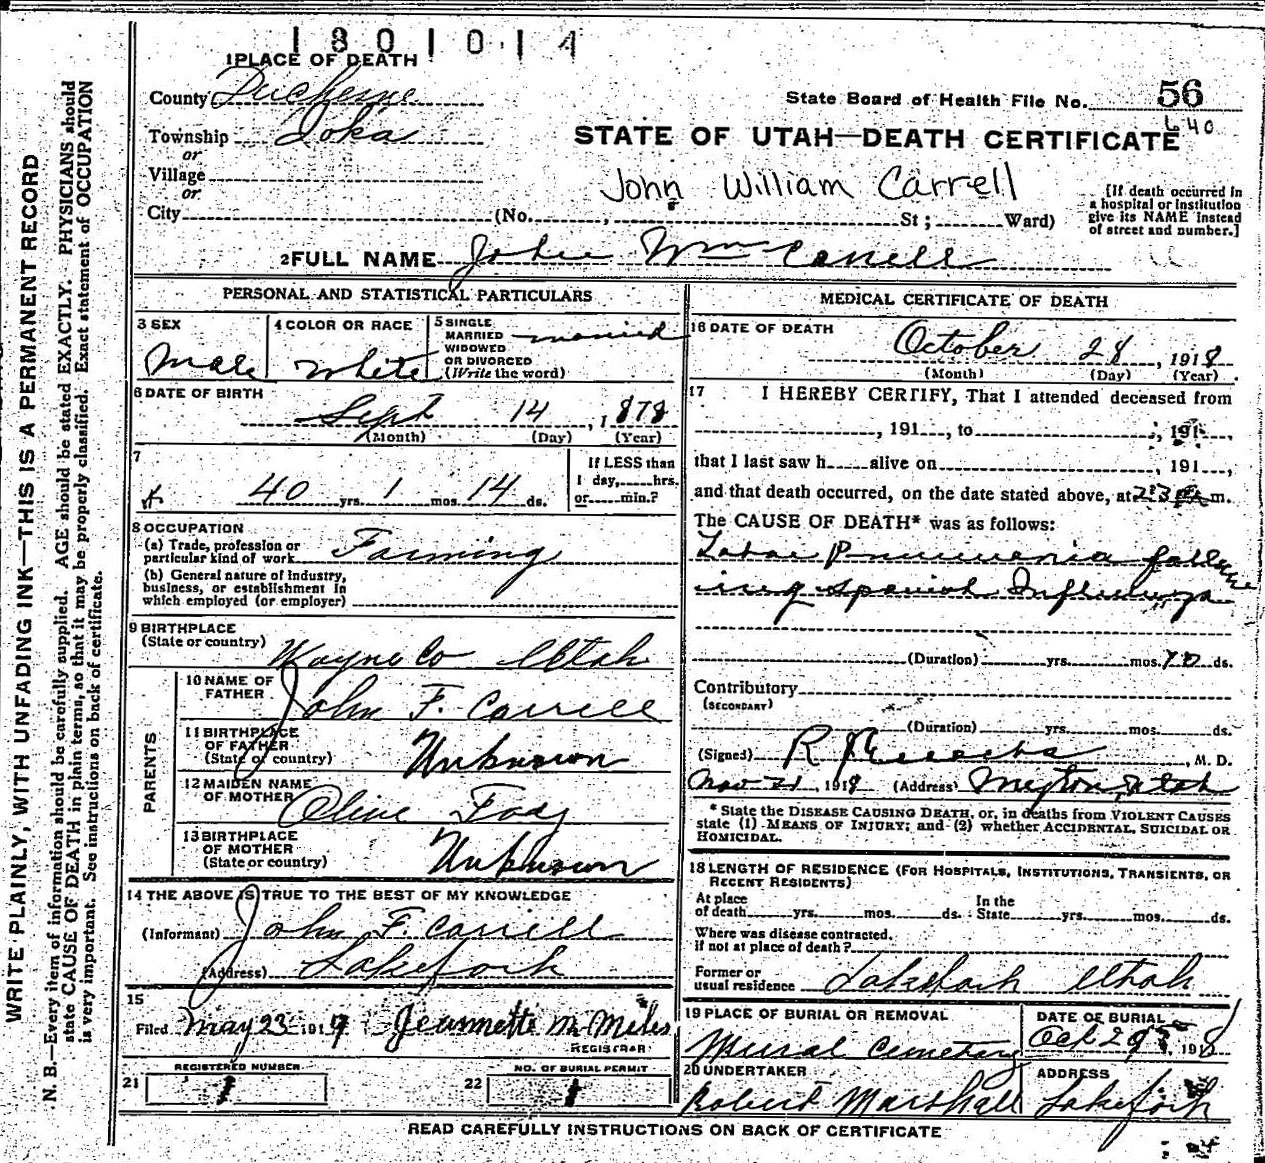 1801014
1 PLACE OF DEATH
County Duchesne
State Board of Health File No. 56
640
Township Ioka
STATE OF UTAH—DEATH CERTIFICATE
or
Village
or
John William Carrell
City (No. , St ; Ward)
[If death occurred in a hospital or institution give its NAME instead of street and number.]
2 FULL NAME John Wm Carrell
PERSONAL AND STATISTICAL PARTICULARS
3 SEX
Male
4 COLOR OR RACE
White
5 SINGLE
MARRIED
WIDOWED
OR DIVORCED
(Write the word)
married
6 DATE OF BIRTH
Sept 14, 1878
(Month) (Day) (Year)
7
40 yrs. 1 mos. 14 ds.
If LESS than
1 day, hrs.
or min.?
8 OCCUPATION
(a) Trade, profession or
particular kind of work Farming
(b) General nature of industry,
business, or establishment in
which employed (or employer)
9 BIRTHPLACE
(State or country) Wayne Co Utah
PARENTS
10 NAME OF
FATHER John F. Carrell
11 BIRTHPLACE
OF FATHER
(State or country) Unknown
12 MAIDEN NAME
OF MOTHER Olive
13 BIRTHPLACE
OF MOTHER
(State or country) Unknown
14 THE ABOVE IS TRUE TO THE BEST OF MY KNOWLEDGE
(Informant) John F. Carrell
(Address) Lakefork
15
Filed May 23 1919 Jeannette M. Miles
REGISTRAR
REGISTERED NUMBER
21 1
NO. OF BURIAL PERMIT
22 1
MEDICAL CERTIFICATE OF DEATH
16 DATE OF DEATH
October 28, 1918
(Month) (Day) (Year)
17 I HEREBY CERTIFY, That I attended deceased from
, 191 , to , 191 ,
that I last saw h alive on , 191 ,
and that death occurred, on the date stated above, at m.
The CAUSE OF DEATH* was as follows:
Lobar Pneumonia follow
ing Spanish Influenza
(Duration) yrs. mos. 10 ds.
Contributory
(SECONDARY)
(Duration) yrs. mos. ds.
(Signed) R , M. D.
Nov 21, 1918 (Address) Myton, Utah
* State the DISEASE CAUSING DEATH, or, in deaths from VIOLENT CAUSES
state (1) MEANS OF INJURY; and (2) whether ACCIDENTAL, SUICIDAL OR
HOMICIDAL.
18 LENGTH OF RESIDENCE (FOR HOSPITALS, INSTITUTIONS, TRANSIENTS, OR
RECENT RESIDENTS)
At place
of death yrs. mos. ds.
In the
State yrs. mos. ds.
Where was disease contracted,
if not at place of death?
Former or
usual residence Lakefork Utah
19 PLACE OF BURIAL OR REMOVAL
Cemetary
DATE OF BURIAL
Oct 29, 1918
20 UNDERTAKER
Robert Marshall
ADDRESS
Lakefork
READ CAREFULLY INSTRUCTIONS ON BACK OF CERTIFICATE
WRITE PLAINLY, WITH UNFADING INK—THIS IS A PERMANENT RECORD
N. B.—Every item of information should be carefully supplied. AGE should be stated EXACTLY. PHYSICIANS should
state CAUSE OF DEATH in plain terms, so that it may be properly classified. Exact statement of OCCUPATION
is very important. See instructions on back of certificate.